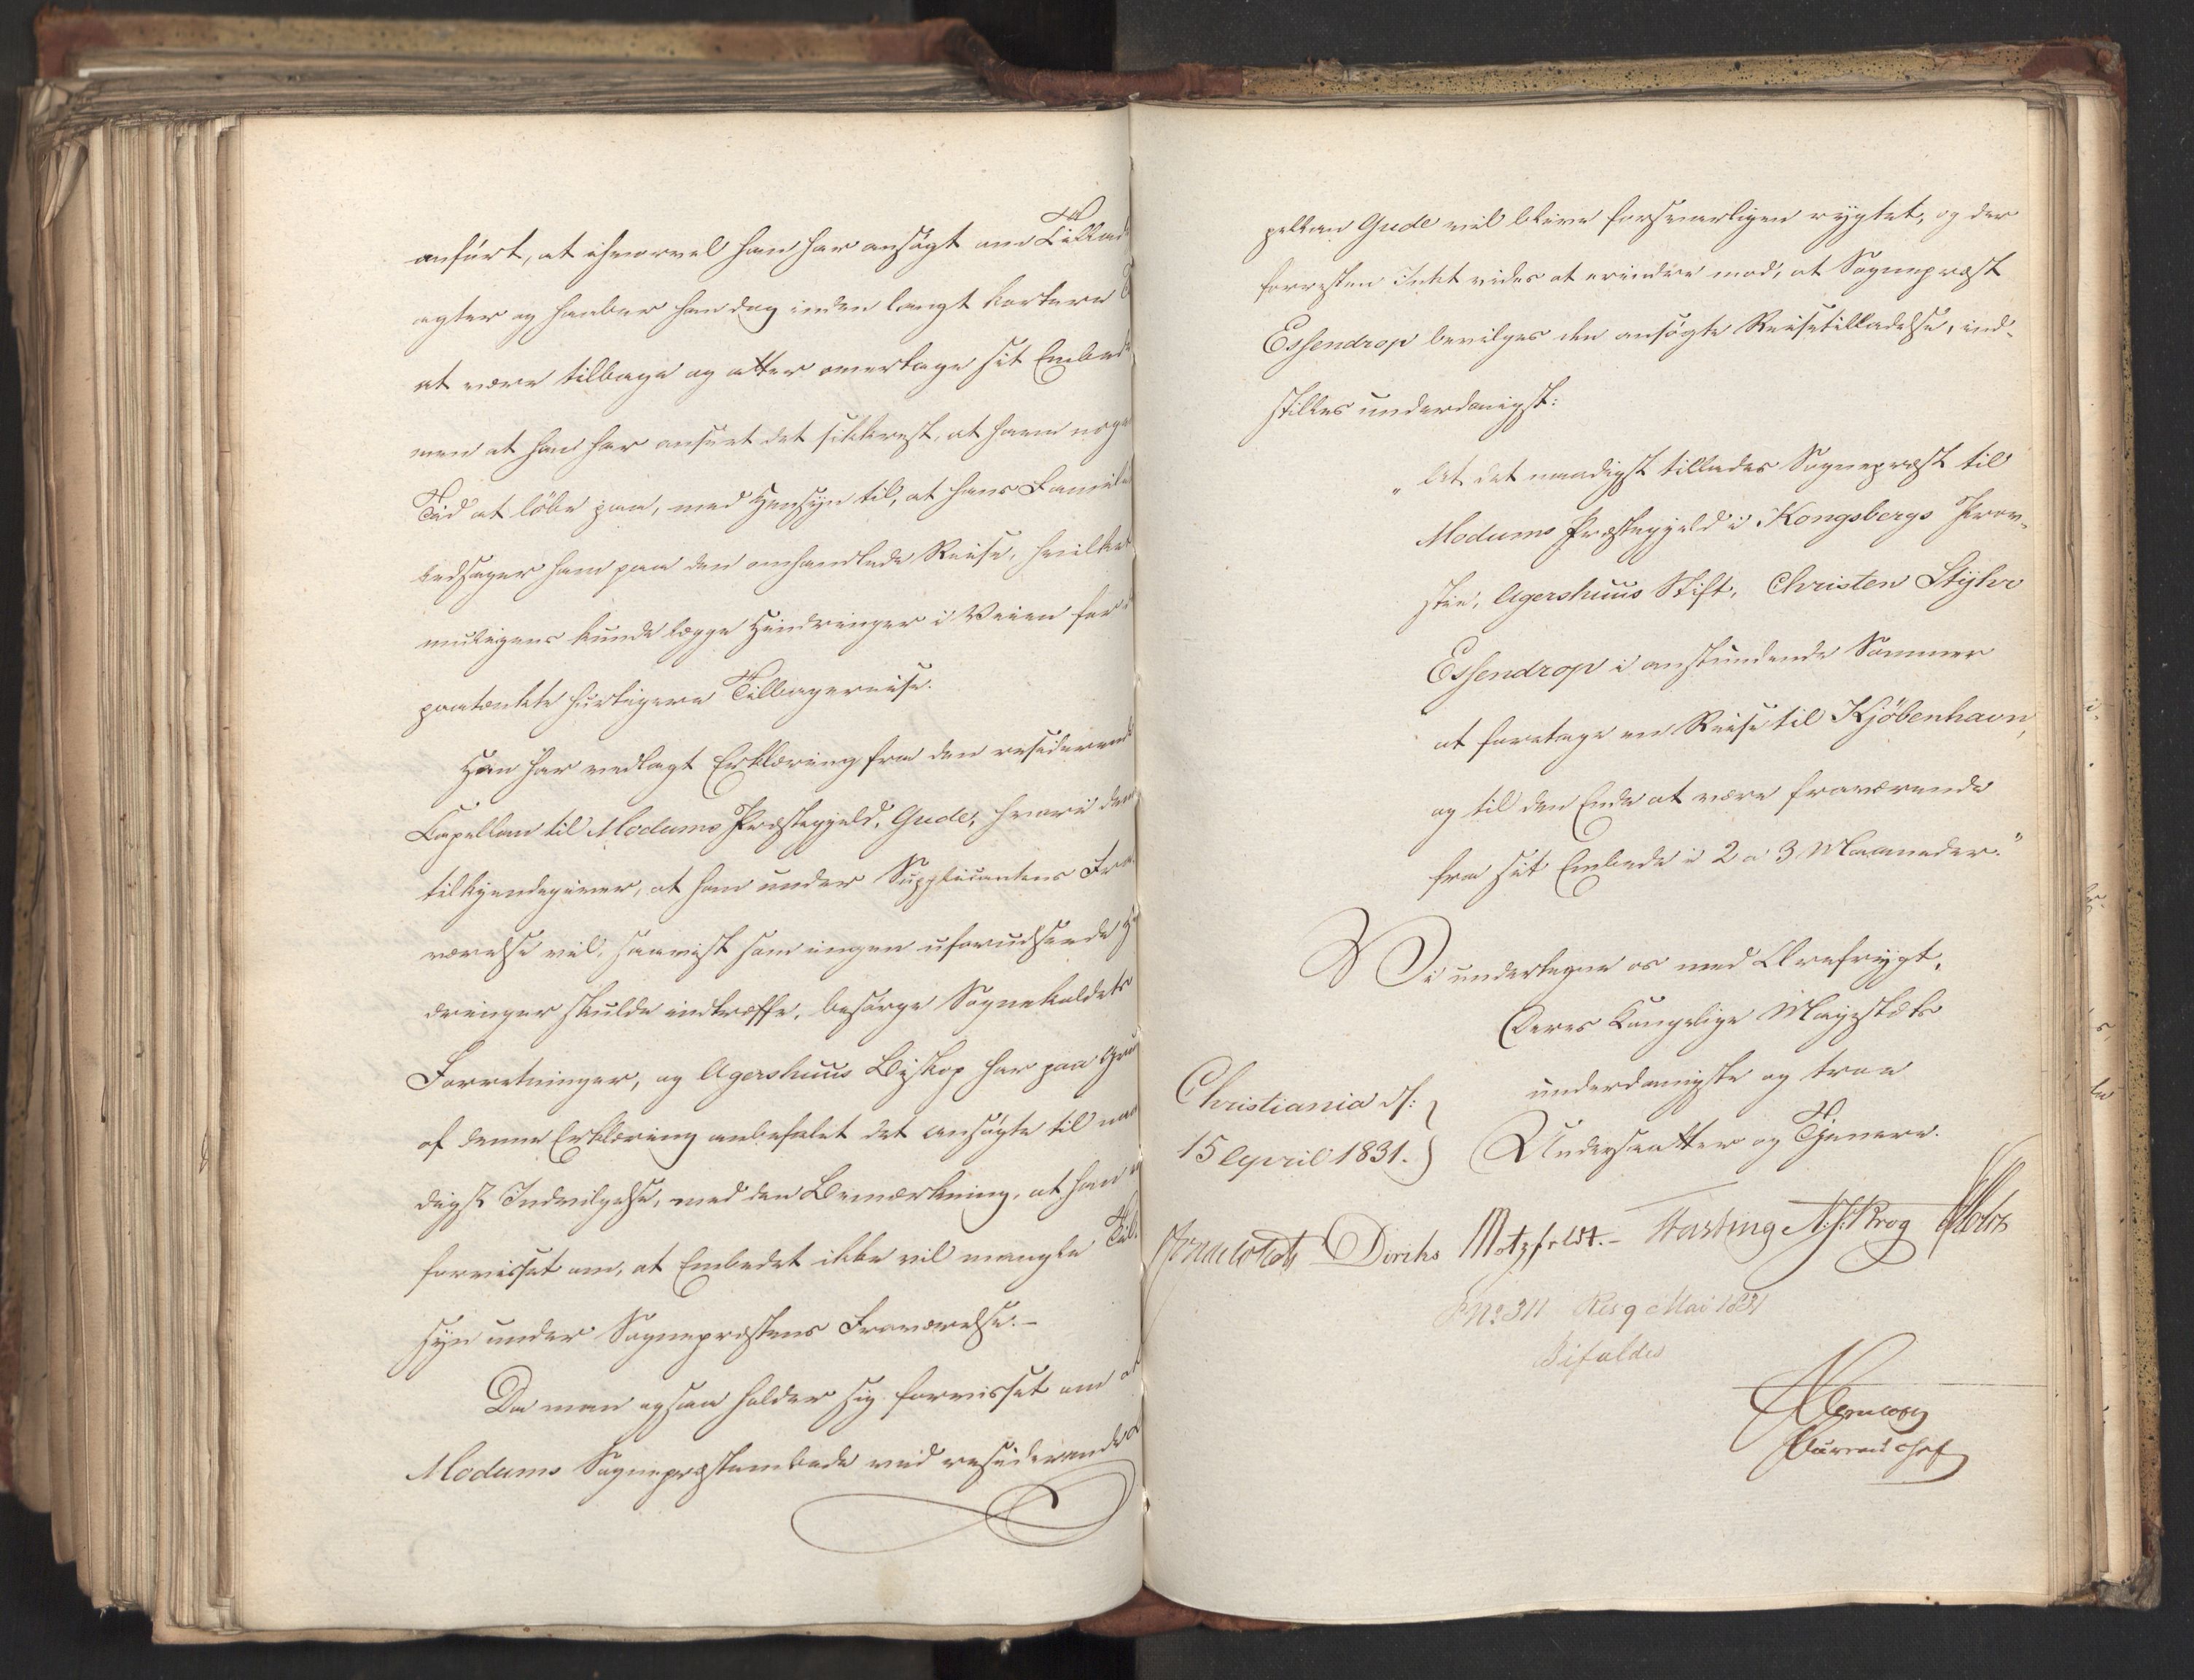 anført, at ihvorvel han har ansøgt om Tillad
agter og haaber han dog inden langt kortere T
at være tilbage og atter overtage sit Embed
men at han har anseet det sikkrest, at have noge
Tid at løbe paa, med Hensyn til, at hans Famili
ledsager ham paa den omhandlede Reise, hvilket
muligens kunde lægge Hindringer i Veien for
paatænkte hurtigere Tilbagereise.
Han har vedlagt Erklæring fra den residerend
Capellan til Modums Præstegjeld, Gude, hvori den
tilkjendegiver, at han under Supplicantens Fra
værelse vil, saavist som ingen uforudseede H
dringer skulde indtræffe, besørge Sognekaldets
Forretninger, og Agershuus Biskop har paa Gru
af denne Erklæring anbefalet det Ansøgte til naa
digst Indvilgelse, med den Bemærkning, at han
forvisset om, at Embedet ikke vil mangle Til
syn under Sognepræstens Fraværelse.-
Da man ogsaa holder sig forvisset om at
Modums Sognepræstembede ved residerende
pellan Gude vil blive forsvarligen røgtet, og der
forresten Intet vides at erindre mod, at Sognepræst
Essendrop bevilges den ansøgte Reisetilladelse, ind-
stilles underdanigst:
"At det naadigst tillades Sognepræst til
Modums Præstegjeld i Kongsbergs Prov-
stie, Agershuus Stift, Christen Stÿhr
Essendrop i anstundende Sommer
at foretage en Reise til Kjöbenhavn,
og til den Ende at være fraværende
fra sit Embede i 2 a 3 Maaneder."
Vi undertegne os med Ærefrygt,
Deres Kongelige Majestæts
Christiania d:
underdanigste og troe
15 April 1831.
Undersaatter og Tjenere.
Diriks Motzfeldt.- Fasting N. J. Krog Holst
No 311 Res 9 Mai 1831
Bifaldes
Bureauchef